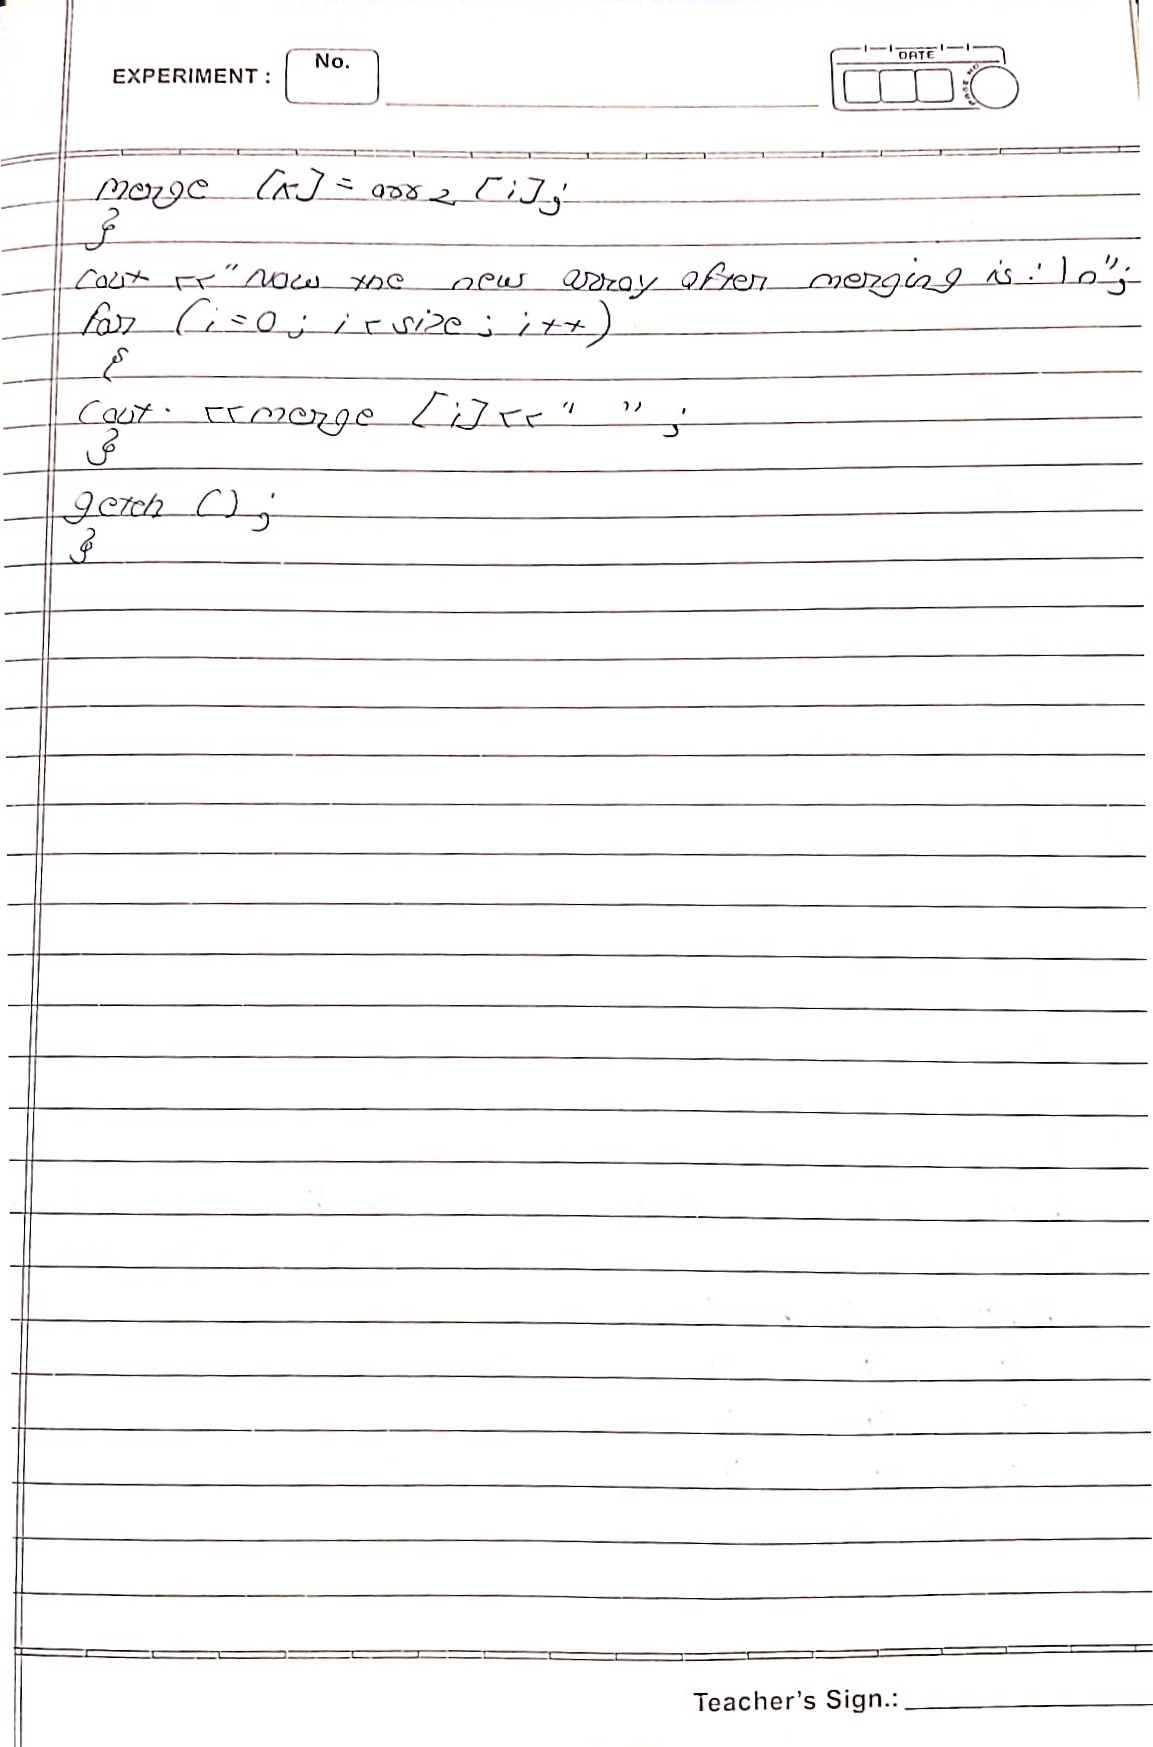 EXPERIMENT :
No.
DATE
merge [k] = arr2 [i];
}
cout << "Now the new array after merging is : \n";
for (i=0 ; i < size ; i++)
{
cout. <<merge [i]<<" " ;
}
getch () ;
}
Teacher's Sign.: